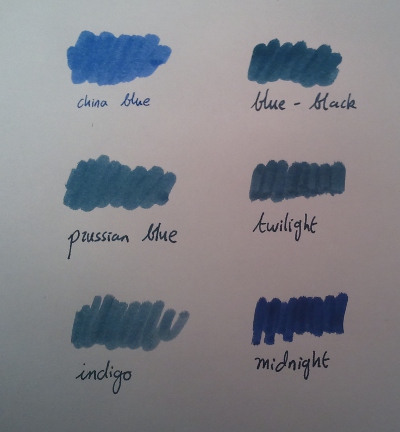 china blue
blue - black
prussian blue
twilight
indigo
midnight